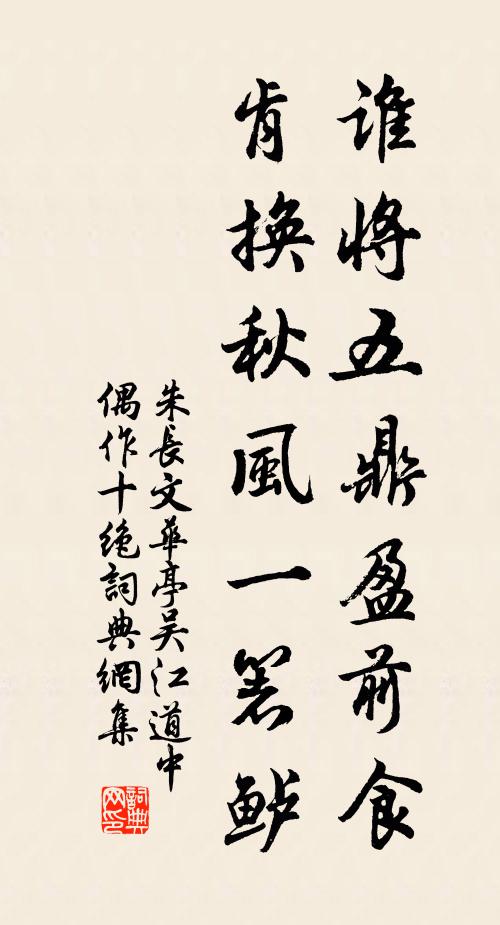 谁將五鼎盈前食
肯換秋風一箸鲈
朱長文華亭吴江道中
偶作十绝詞典網集
詞典
网印